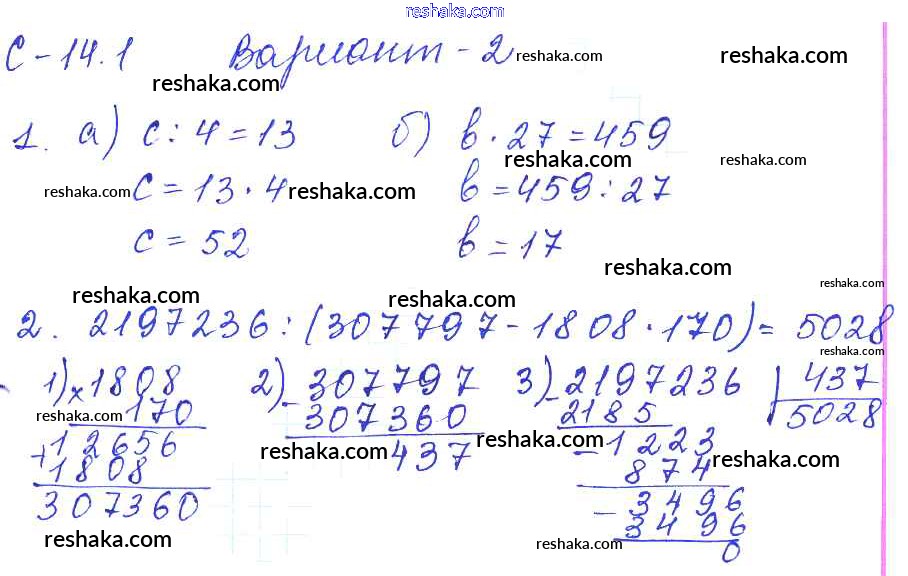 reshaka.com
С-14.1 Вариант-2
reshaka.com reshaka.com reshaka.com
1. а) c : 4 = 13 б) b · 27 = 459
reshaka.com reshaka.com
reshaka.com c = 13 · 4 reshaka.com b = 459 : 27
c = 52 b = 17
reshaka.com
reshaka.com reshaka.com reshaka.com
2. 2197236 : (307797 - 1808 · 170) = 5028
reshaka.com
1) × 1808 2) - 307797 3) - 2197236 | 437
reshaka.com 170 307360 2185 5028
+ 12656 reshaka.com 437 reshaka.com - 1223
1808 874 reshaka.com
307360 - 3496
3496
reshaka.com reshaka.com 0